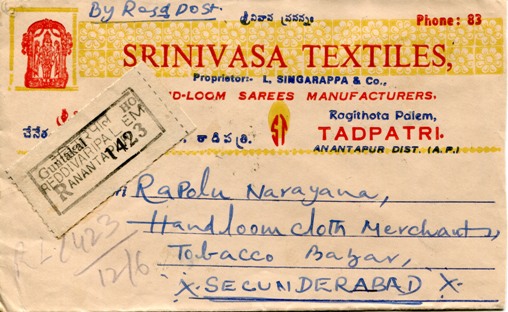 By Regd post.
Phone: 83
SRINIVASA TEXTILES,
Proprietor:- L, SINGARAPPA & Co.,
D-LOOM SAREES MANUFACTURERS.
చేనేత
Ragithota Palem,
ST
తాడిపత్రి.
TADPATRI.
ANANTAPUR DIST. (A.P.)
Guntakal HO
REDDIVARIPALEM
R ANANTAPUR
1423
Rapolu Narayana,
Handloomcloth Merchants,
Tobacco Bazar,
X. SECUNDERABAD X.
RL 1423
12/6